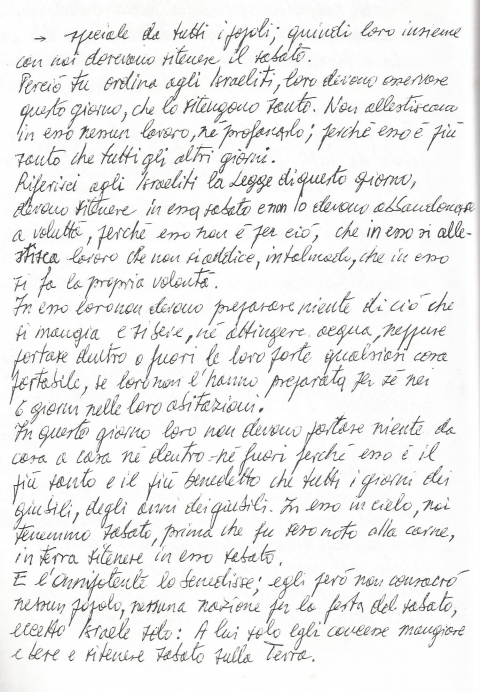 → speciale da tutti i popoli; quindi loro insieme
con noi dovevano ritenere il sabato.
Perciò tu ordina agli Israeliti, loro devono osservare
questo giorno, che lo ritengono santo. Non allestiscano
in esso nessun lavoro, né profanarlo; perché esso è più
santo che tutti gli altri giorni.
Riferisci agli Israeliti la Legge di questo giorno,
devono ritenere in esso sabato e non lo devono abbandonare
a voluttà, perché esso non è per ciò, che in esso si alle-
stisca lavoro che non si addice, in talmodo, che in esso
si fa la propria volontà.
In esso loro non devono preparare niente di ciò che
si mangia e si beve, né attingere acqua, neppure
portare dentro o fuori le loro porte qualsiasi cosa
portabile, se loro non l'hanno preparata per sé nei
6 giorni nelle loro abitazioni.
In questo giorno loro non devono portare niente da
casa a casa né dentro - né fuori perché esso è il
più santo e il più benedetto che tutti i giorni dei
giubili, degli anni dei giubili. In esso in cielo, noi
tenemmo sabato, prima che fu reso noto alla carne,
in terra ritenere in esso sabato.
E l'Onnipotente lo benedisse; egli però non consacrò
nessun popolo, nessuna nazione per la festa del sabato,
eccetto Israele solo: A lui solo egli concesse mangiare
e bere e ritenere sabato sulla Terra.